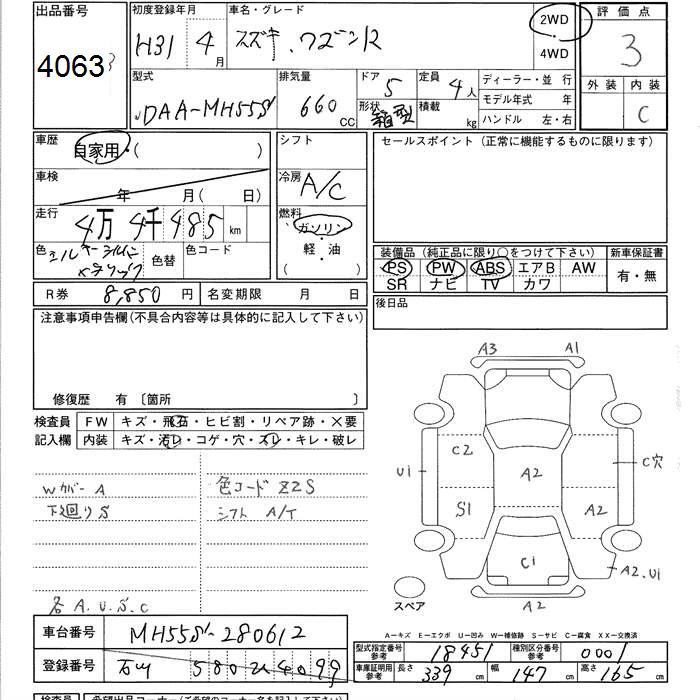 出品番号
4063
初度登録年月
H31 年 4 月
車名・グレード
スズキ ワゴンR
2WD
4WD
評価点
3
外装 内装
C
型式
DAA-MH55S
排気量
660 CC
ドア 5
形状 箱型
定員 4 人
積載 kg
ディーラー・並行
モデル年式 年
ハンドル 左・右
車歴
自家用・( )
車検
年 月( 日)
走行
4万 4千 485 km
色
色替
色コード
シフト
冷房 A/C
燃料
ガソリン・
軽・油
( )
セールスポイント (正常に機能するものに限ります)
装備品 (純正品に限り○をつけて下さい)
PS PW ABS エアB AW
SR ナビ TV カワ
新車保証書
有・無
R券 8,850 円
名変期限 月 日
後日品
注意事項申告欄(不具合内容等は具体的に記入して下さい)
修復歴 有 〔箇所 〕
検査員
記入欄
FW キズ・飛石・ヒビ割・リペア跡・X要
内装 キズ・汚レ・コゲ・穴・スレ・キレ・破レ
Wカバー A
下廻りS
色コード ZZS
シフト A/T
各 A.U.S.C
A3 A1
C2 A2 C穴
U1
S1 A2
C1
A2.U1
A2
スペア
A―キズ E―エクボ U―凹み W―補修跡 S―サビ C―腐食 XX―交換済
車台番号 MH55S-280612
登録番号 石川 580 い 4099
型式指定番号
参考
18451
種別区分番号
参考
0001
車庫証明用
参考
長さ 339 cm 幅 147 cm 高さ 165 cm